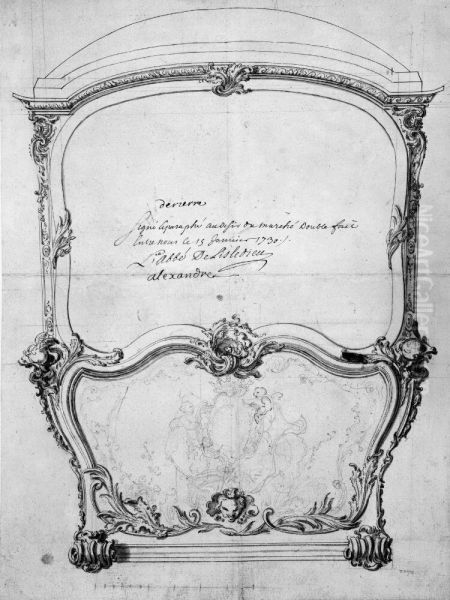 derierre
Signé et paraphé au desir du marché Double fait
Entre nous le 15 janvier 1730 /.
L'abbé De Lisledieu
alexandre